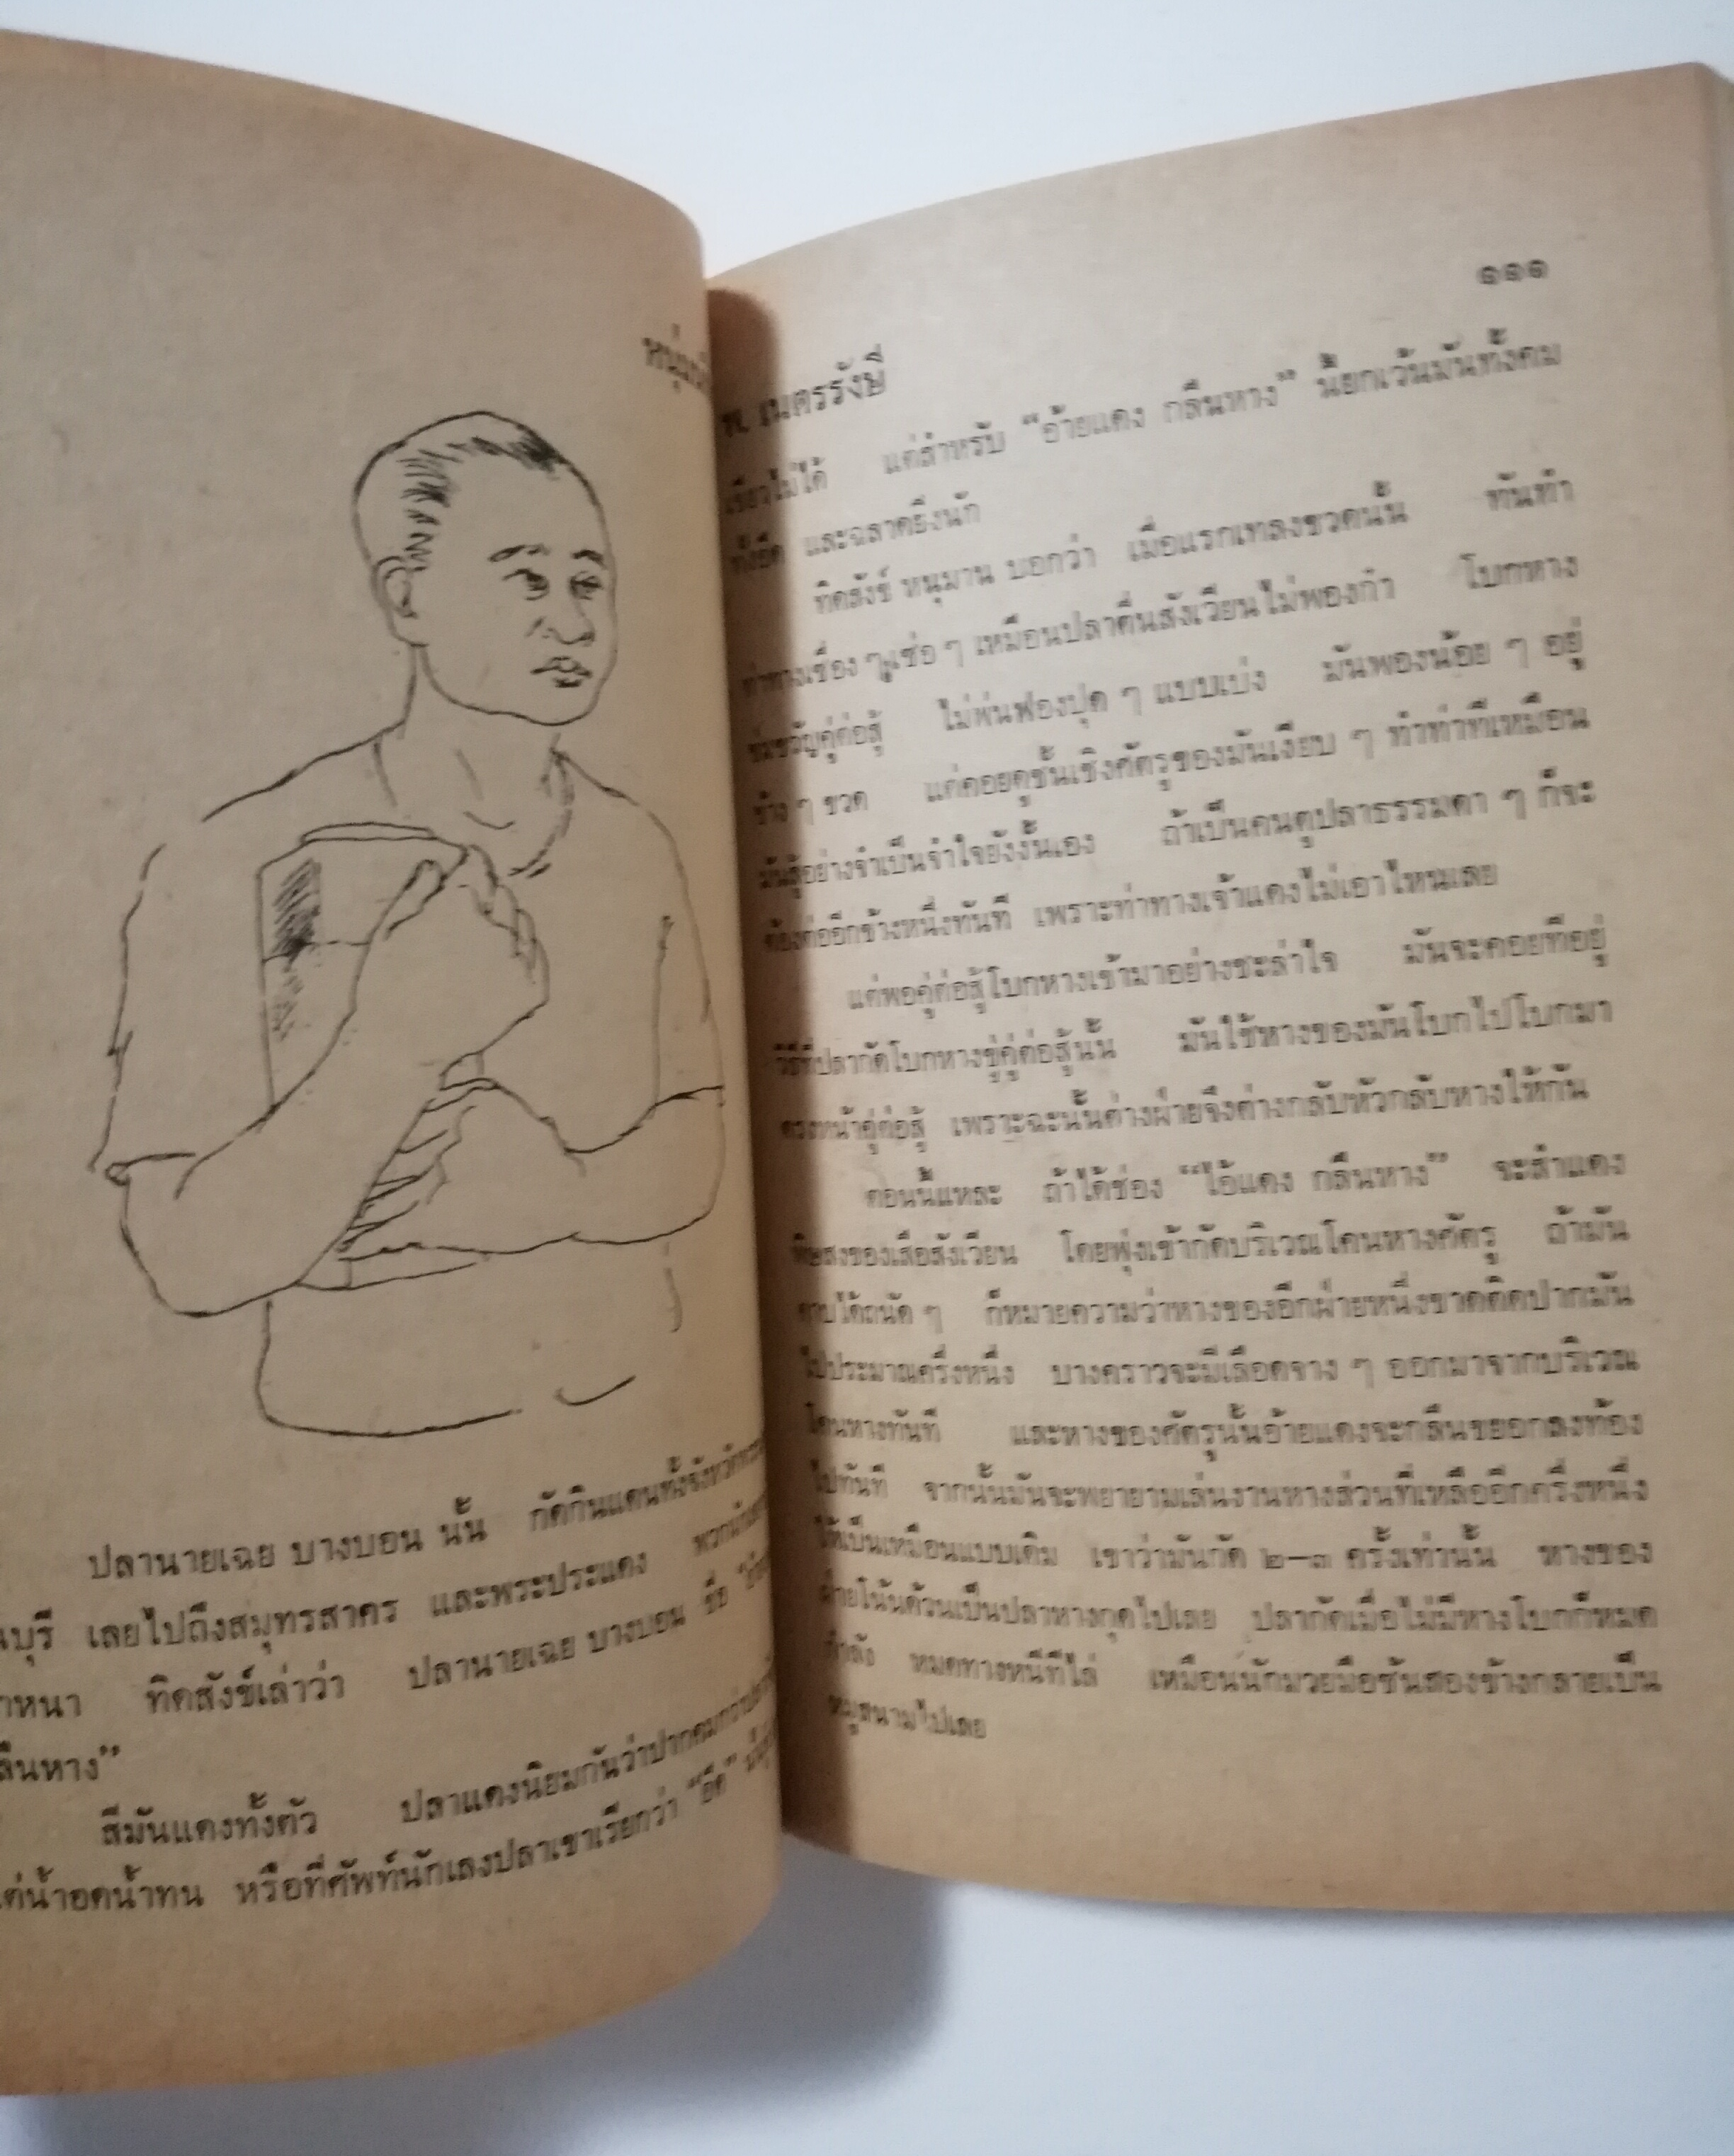 ปลานายเฉย บางบอน นั้น กัดกินแดนทั้งจังหวัด
บุรี เลยไปถึงสมุทรสาคร และพระประแดง
ทิดสังข์เล่าว่า ปลานายเฉย บางบอน ชื่อ
ลืนหาง”
สีมันแดงทั้งตัว ปลาแดงนิยมกันว่าปากคมกว่า
น้ำอดน้ำทน หรือที่ศัพท์นักเลงปลาเขาเรียกว่า “อึด”
๑๑๑
พ. เนตรรังษี
เขียวไม่ได้ แต่สำหรับ “อ้ายแดง กลืนหาง” นี้ยกเว้นมันทั้งคม
ทั้งอึด และฉลาดยิ่งนัก
ทิดสังข์ หนุมาน บอกว่า เมื่อแรกเทลงขวดนั้น ทันทำ
ท่าทางเชื่อง ๆ เซ่อ ๆ เหมือนปลาตื่นสังเวียนไม่พองกำ โบกหาง
ข่มขวัญคู่ต่อสู้ ไม่พ่นฟองปุด ๆ แบบเบ่ง มันพองน้อย ๆ อยู่
ข้าง ๆ ขวด แต่คอยดูชั้นเชิงศัตรูของมันเงียบ ๆ ทำท่าทีเหมือน
มันสู้อย่างจำเป็นจำใจยังงั้นเอง ถ้าเป็นคนดูปลาธรรมดา ๆ ก็จะ
ต้องต่ออีกข้างหนึ่งทันที เพราะท่าทางเจ้าแดงไม่เอาไหนเลย
แต่พอคู่ต่อสู้โบกหางเข้ามาอย่างชะล่าใจ มันจะคอยทีอยู่
วิธีที่ปลากัดโบกหางขู่คู่ต่อสู้นั้น มันใช้หางของมันโบกไปโบกมา
ตรงหน้าคู่ต่อสู้ เพราะฉะนั้นต่างฝ่ายจึงต่างกลับหัวกลับหางให้กัน
ตอนนี้แหละ ถ้าได้ช่อง “ไอ้แดง กลืนหาง” จะสำแดง
พิษสงของเสือสังเวียน โดยพุ่งเข้ากัดบริเวณโคนหางศัตรู ถ้ามัน
คาบได้ถนัด ๆ ก็หมายความว่าหางของอีกฝ่ายหนึ่งขาดติดปากมัน
ไปประมาณครึ่งหนึ่ง บางคราวจะมีเลือดจาง ๆ ออกมาจากบริเวณ
โคนหางทันที และหางของศัตรูนั้นอ้ายแดงจะกลืนขยอกลงท้อง
ไปทันที จากนั้นมันจะพยายามเล่นงานหางส่วนที่เหลืออีกครึ่งหนึ่ง
ให้เป็นเหมือนแบบเดิม เขาว่ามันกัด ๒–๓ ครั้งเท่านั้น หางของ
ฝ่ายโน้นด้วนเป็นปลาหางกุดไปเลย ปลากัดเมื่อไม่มีหางโบกก็หมด
กำลัง หมดทางหนีทีไล่ เหมือนนักมวยมือซ้นสองข้างกลายเป็น
หมูสนามไปเลย